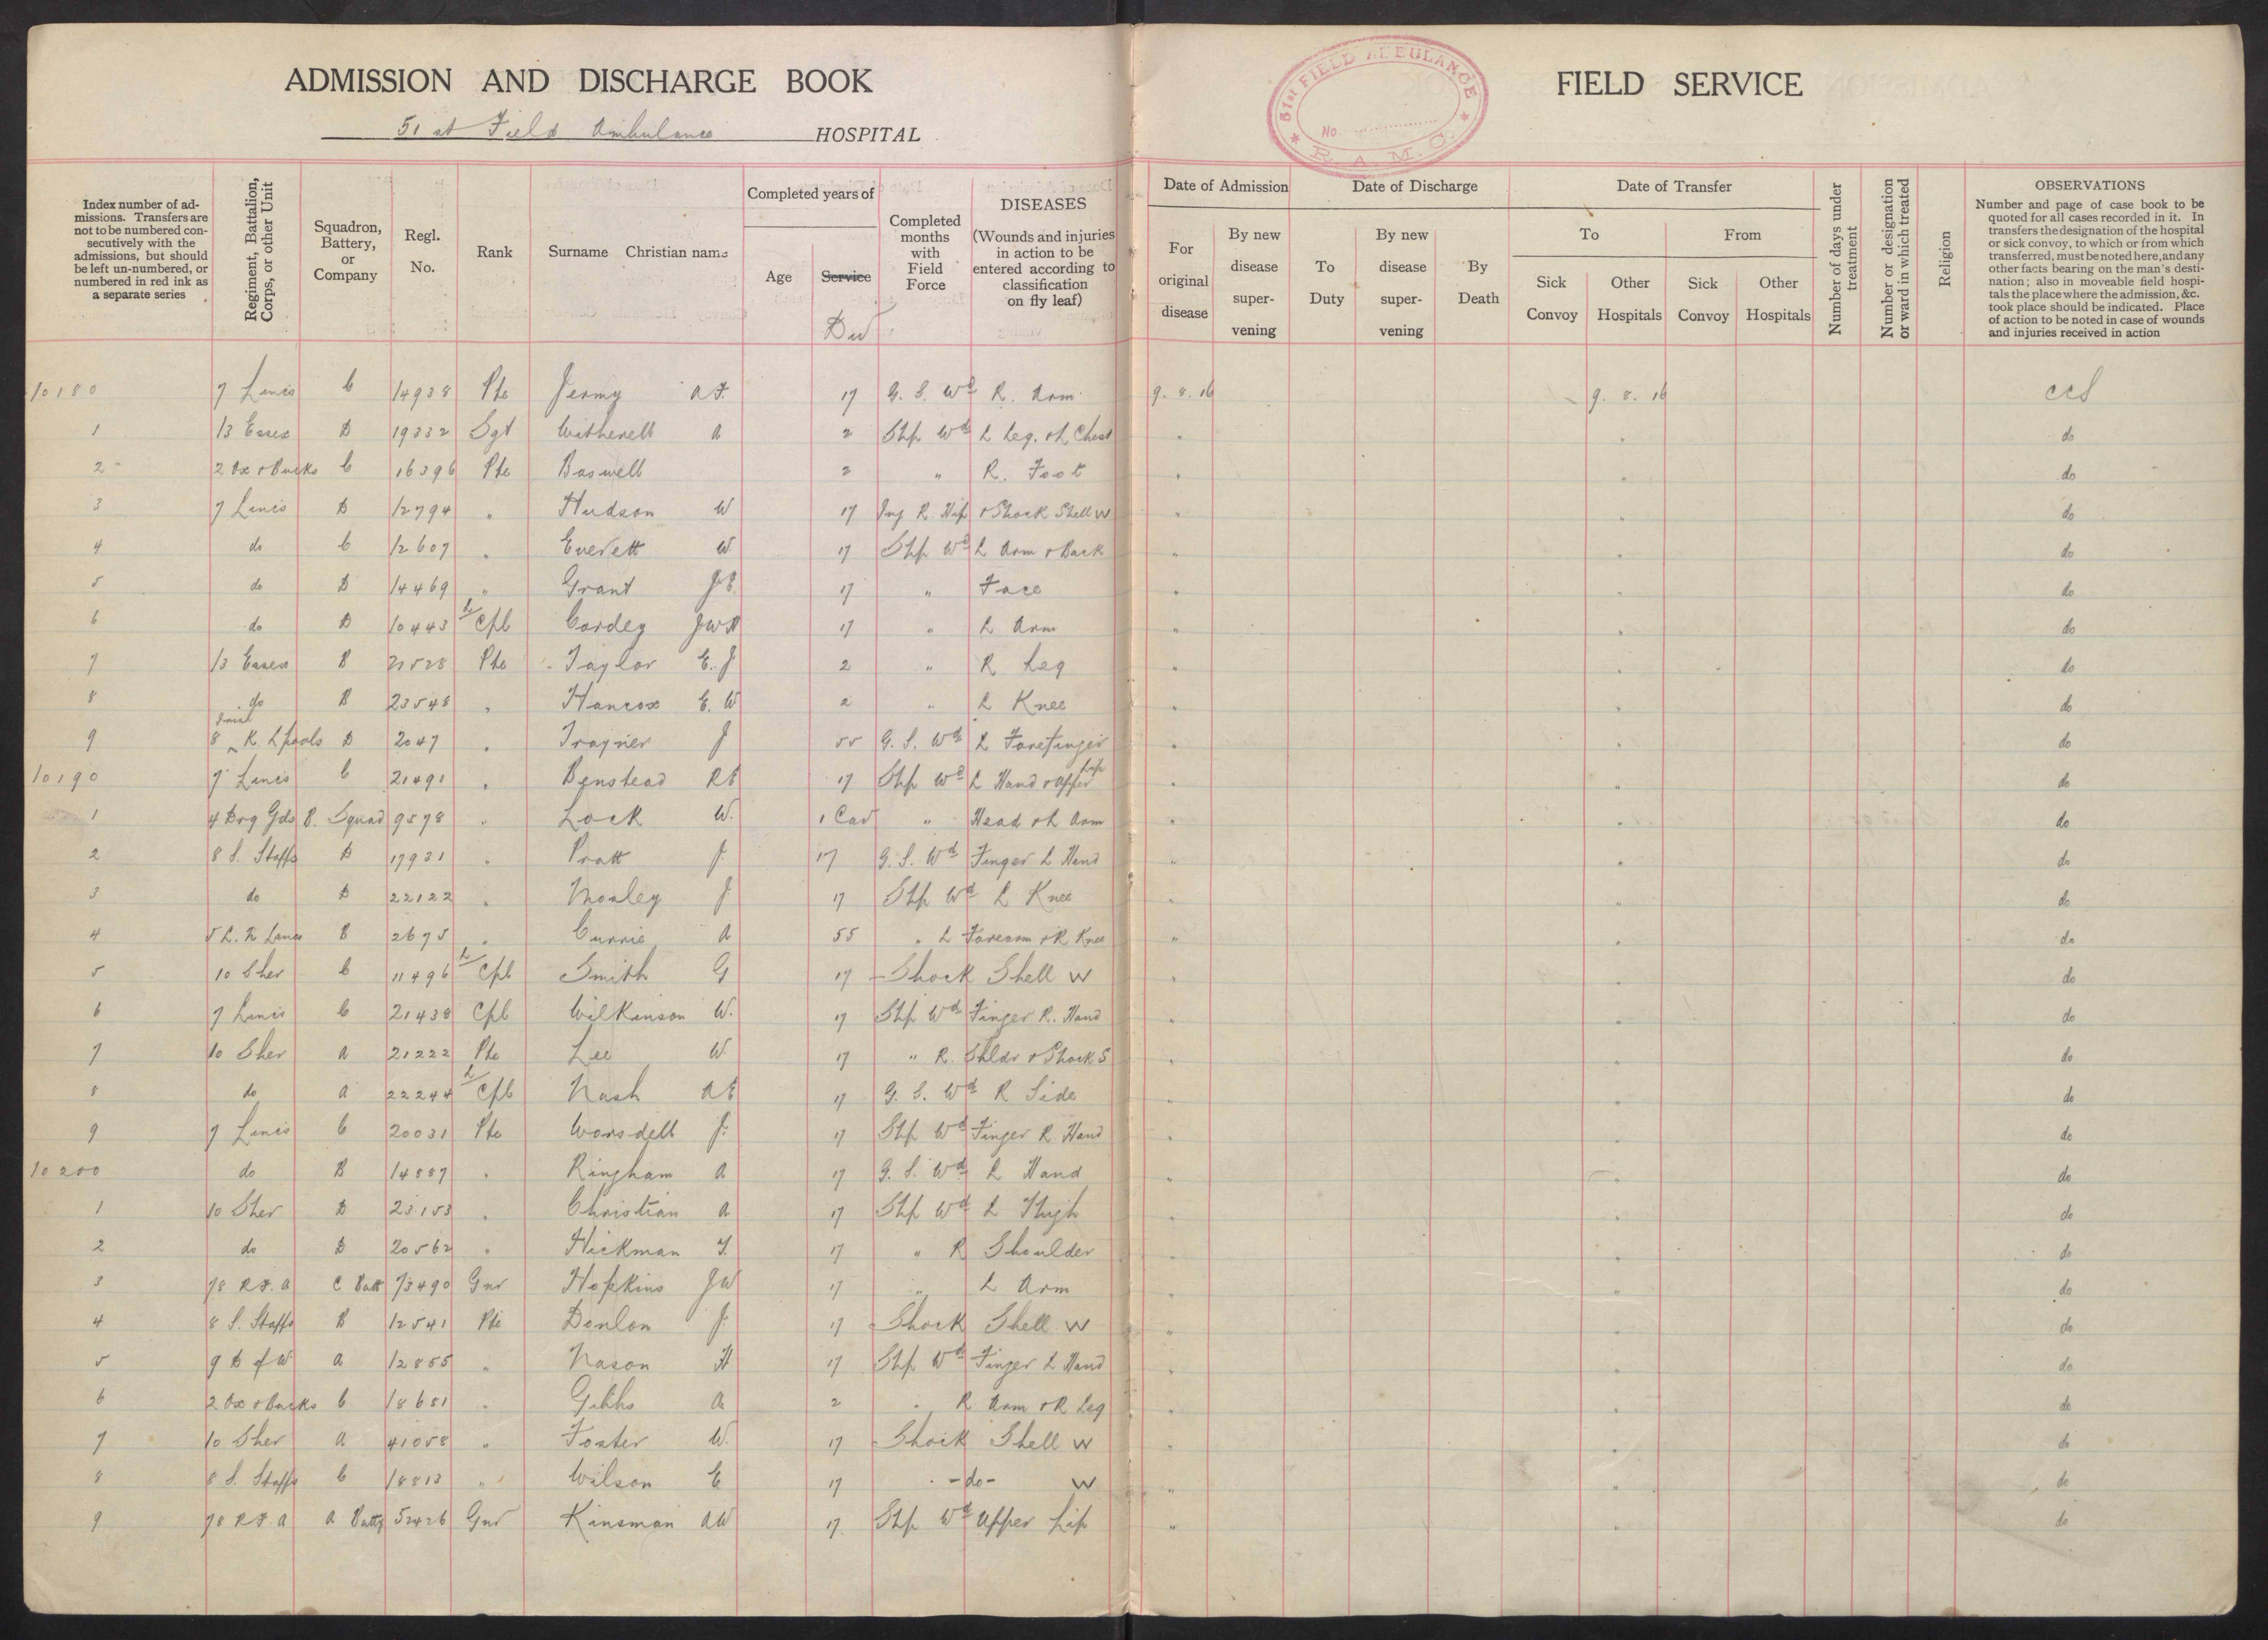 ADMISSION AND DISCHARGE BOOK
51st Field Ambulance HOSPITAL
51st FIELD AMBULANCE
No.
R. A. M. C.
FIELD SERVICE
Index number of admissions. Transfers are not to be numbered consecutively with the admissions, but should be left un-numbered, or numbered in red ink as a separate series
Regiment, Battalion, Corps, or other Unit
Squadron, Battery, or Company
Regl. No.
Rank
Surname Christian name
Completed years of
Age
Service
Div
Completed months with Field Force
DISEASES
(Wounds and injuries in action to be entered according to classification on fly leaf)
Date of Admission
For original disease
By new disease supervening
Date of Discharge
To Duty
By new disease supervening
By Death
Date of Transfer
To
From
Sick Convoy
Other Hospitals
Sick Convoy
Other Hospitals
Number of days under treatment
Number or designation or ward in which treated
Religion
OBSERVATIONS
Number and page of case book to be quoted for all cases recorded in it. In transfers the designation of the hospital or sick convoy, to which or from which transferred, must be noted here, and any other facts bearing on the man's destination; also in moveable field hospitals the place where the admission, &c. took place should be indicated. Place of action to be noted in case of wounds and injuries received in action
10180 7 Lincs C 14938 Pte Jermy A F. 17 G. S. Wd R. Arm 9.8.16 9.8.16 CCS
1 13 Essex D 19332 Sgt Witherell A 2 Shp Wd L Leg. & L Chest " " do
2 2 Ox & Bucks C 16396 Pte Baswell 2 " R. Foot " " do
3 7 Lincs D 12794 " Hudson W 17 Inj R. Hip & Shock Shell W " " do
4 do C 12607 " Everett W 17 Shp Wd L Arm & Back " " do
5 do D 14469 " Grant J E. 17 " Face " " do
6 do D 10443 L/Cpl Cordey J W H 17 " L Arm " " do
7 13 Essex B 21528 Pte Taylor E. J 2 " R Leg " " do
8 do B 23548 " Hancox E. W 2 " L Knee " " do
9 8 Irish K. Lpools D 2047 " Traynier J 55 G. S. Wd L Forefinger " " do
10190 7 Lincs C 21491 " Benstead R E 17 Shp Wd L Hand & Upper Lip " " do
1 4 Drg Gds B. Squad 9578 " Lock W. 1 Cav " Head & L Arm " " do
2 8 S. Staffs D 17931 " Pratt J 17 G. S. Wd Finger L Hand " " do
3 do D 22122 " Mosley J 17 Shp Wd L Knee " " do
4 5 L. N Lancs B 2675 " Currie A 55 " L Forearm & R Knee " " do
5 10 Sher C 11496 L/Cpl Smith G 17 Shock Shell W " " do
6 7 Lincs C 21438 Cpl Wilkinson W. 17 Shp Wd Finger R. Hand " " do
7 10 Sher A 21222 Pte Lee W. 17 " R. Shldr & Shock S " " do
8 do A 22244 L/Cpl Nash A E 17 G. S. Wd R Side " " do
9 7 Lincs C 20031 Pte Worsdell J. 17 Shp Wd Finger R Hand " " do
10200 do B 14887 " Ringham A 17 G. S. Wd L Hand " " do
1 10 Sher D 23153 " Christian A 17 Shp Wd L Thigh " " do
2 do D 20562 " Hickman T. 17 " R Shoulder " " do
3 78 R F. A C Batt 73490 Gnr Hopkins J W 17 " L Arm " " do
4 8 S. Staffs B 12541 Pte Donlon J. 17 Shock Shell W " " do
5 9 D of W A 12855 " Nason H 17 Shp Wd Finger L Hand " " do
6 2 Ox & Bucks C 18681 " Gibbs A 2 " R Arm & R Leg " " do
7 10 Sher A 41058 " Foster W. 17 Shock Shell W " " do
8 8 S. Staffs C 18813 " Wilson E 17 -do- W " " do
9 78 R F A A Batty 52426 Gnr Kinsman A W 17. Shp Wd Upper Lip " " do